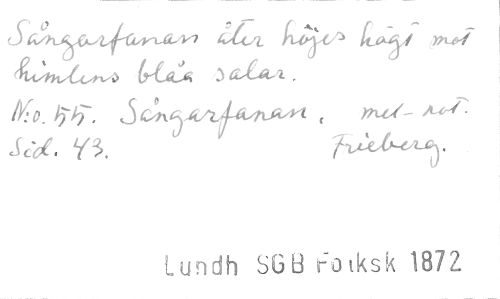 Sångarfanan åter höjes högt mot
himlens blåa salar.
N:o. 55. Sångarfanan, mel-not.
Sid. 43. Frieberg.
Lundh SGB Folksk 1872